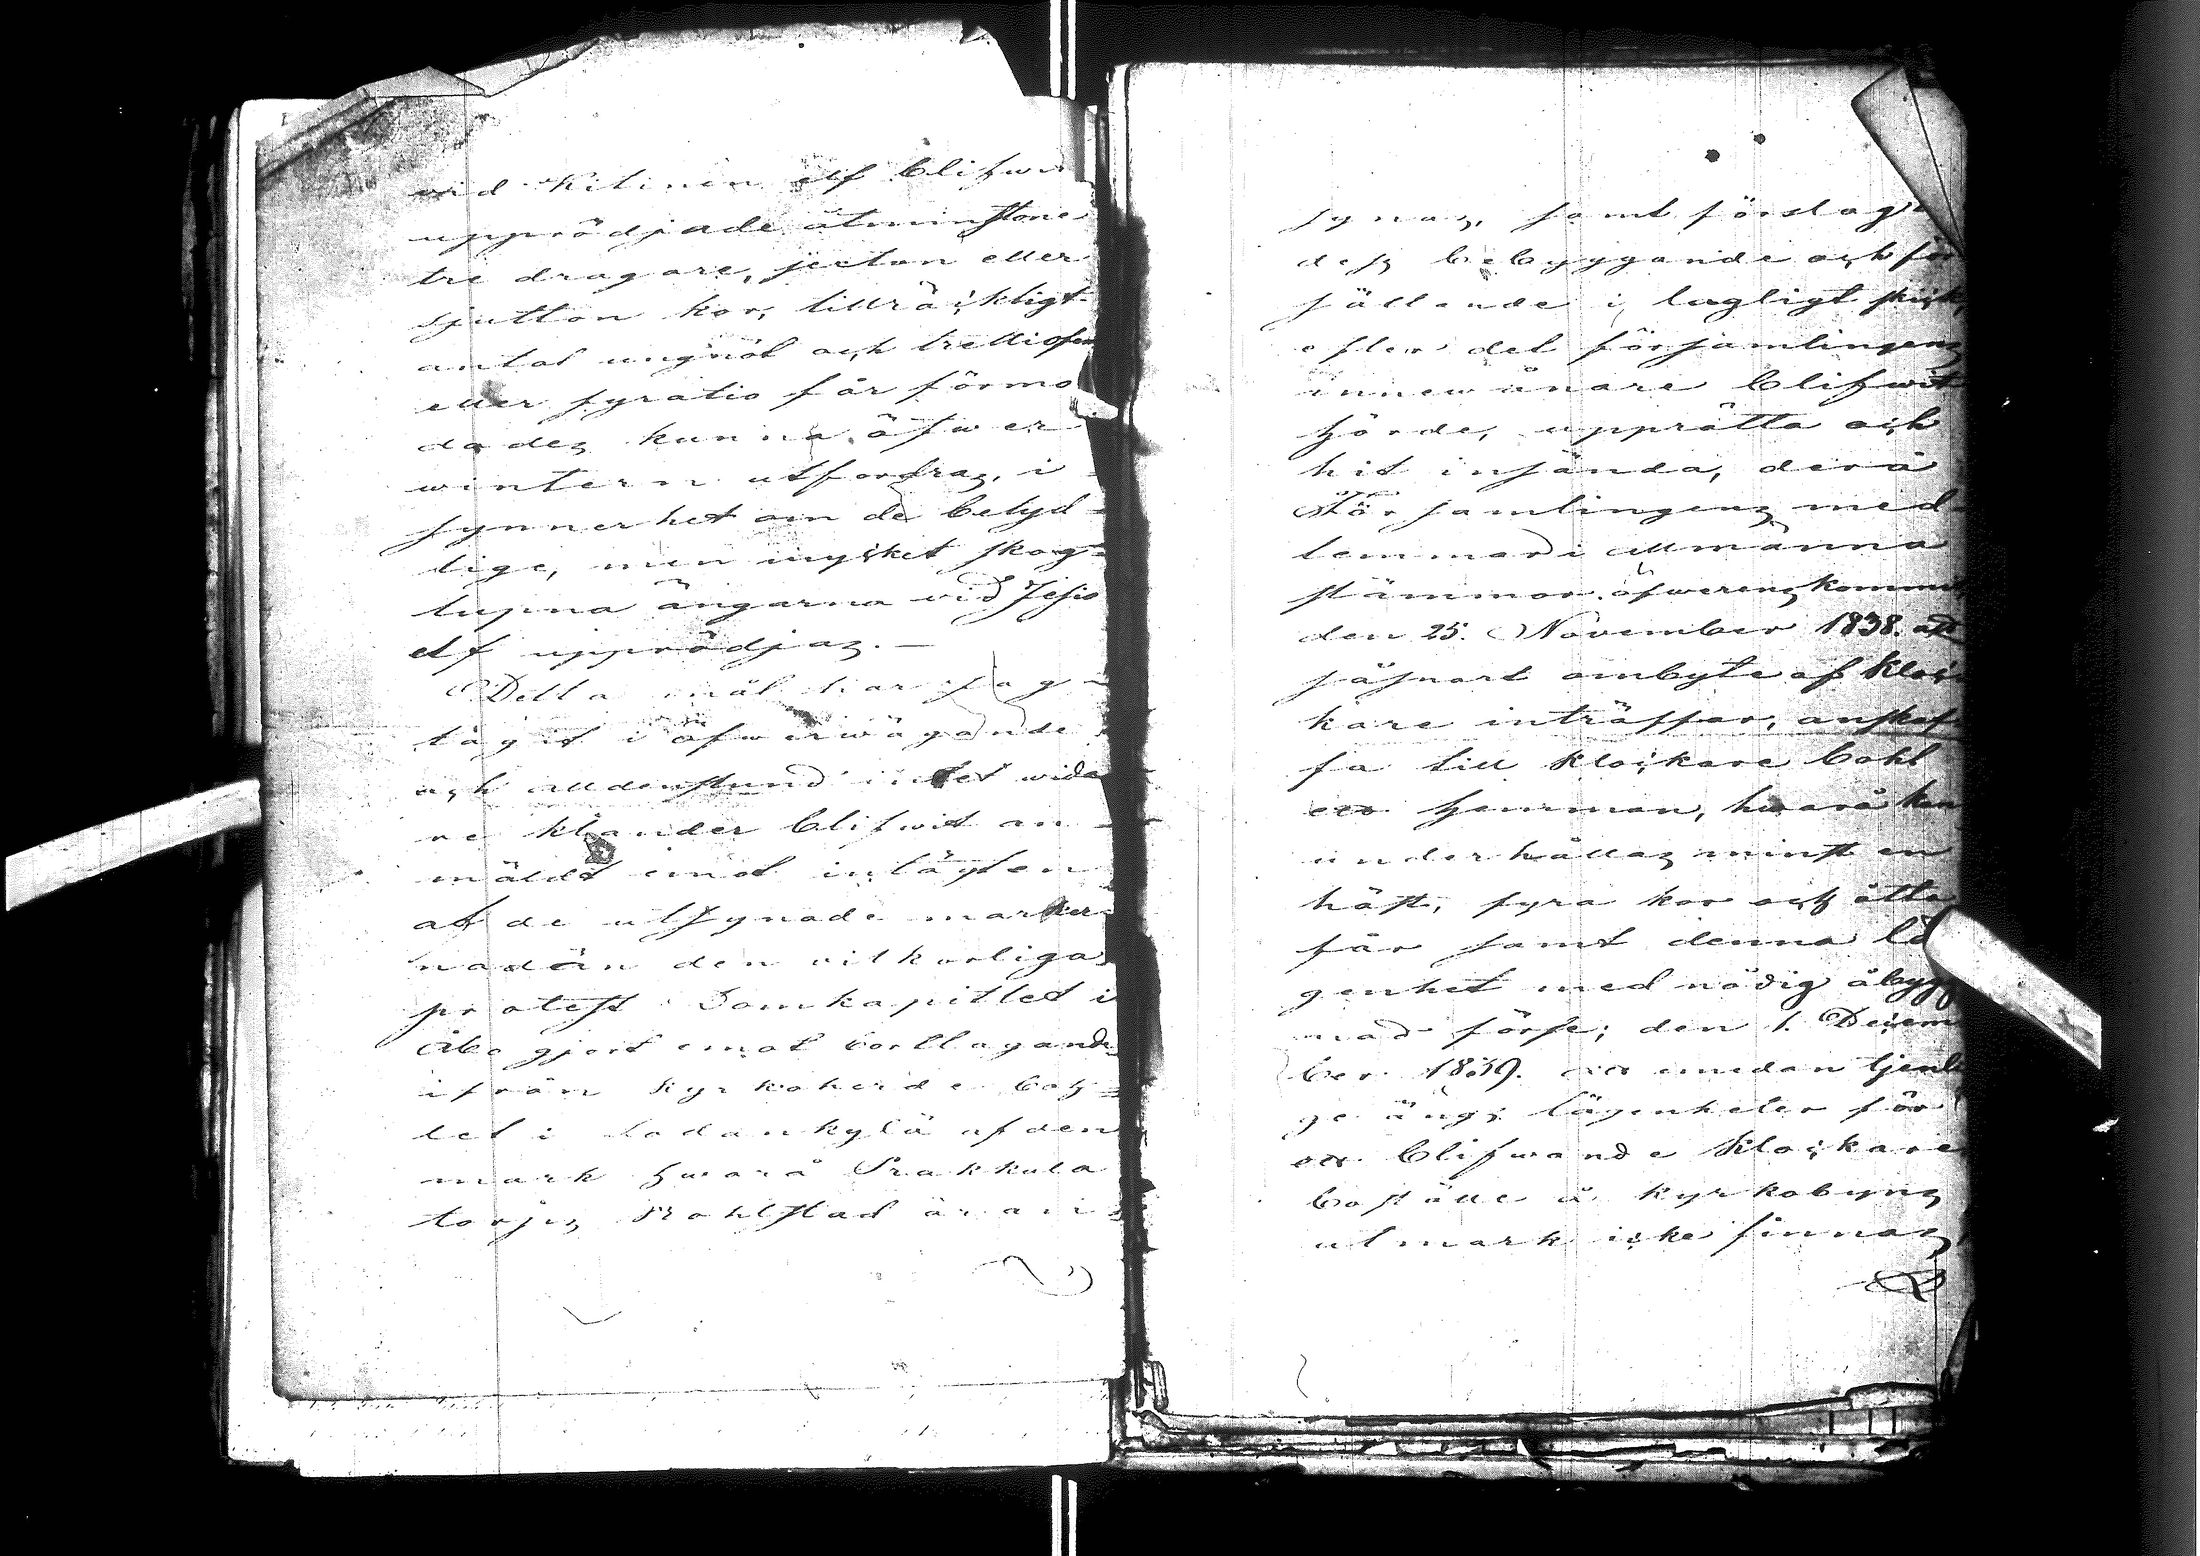 vid Kitinen elf blifwit
upprödjade åtminstone
tre dragare, sexton eller
sjutton kor, tillräckligt
antal ungnöt och trettiofem
eller fyratio får förmo
dades kunna öfwer
wintern utfordras, i
synnerhet om de betyd-
lige, men mycket skog-
lupna ängarna vid Jesiö
elf upprödjas. —
Detta mål har jag
tagit i öfwerwägande
och alldenstund intet wida
re klander blifwit an-
mäldt emot intägten
af de utsynade marker
na än den vilkorliga
protest Domkapitlet i
Åbo gjort emot borttagande
ifrån kyrkoherde bos-
let i Sodankylä af den
mark hwarå Prakkula
torps bohlstad är an
synas, samt förslag
dess bebyggande och för
sättande i lagligt skick,
efter det församlingens
innewånare blifwit
hörde, upprätta och
hit insända, derå
Församlingens med-
lemmar i allmänna
stämmor öfwerenskommit
den 25. November 1838. att
såsnart ombyte af Kloc-
kare inträffar, anskaf-
fa till Klockare bohl
ett hemman, hwarå kan
underhållas minst en
häst, fyra kor och åtta
får samt denna lä
genhet med nödig åbygg
nad förse; den 1. Decem
ber 1839. att emedan tjenli
ge ängs lägenheter för
ett blifwande Klockare
boställe å kyrkobyns
utmark icke finnas,